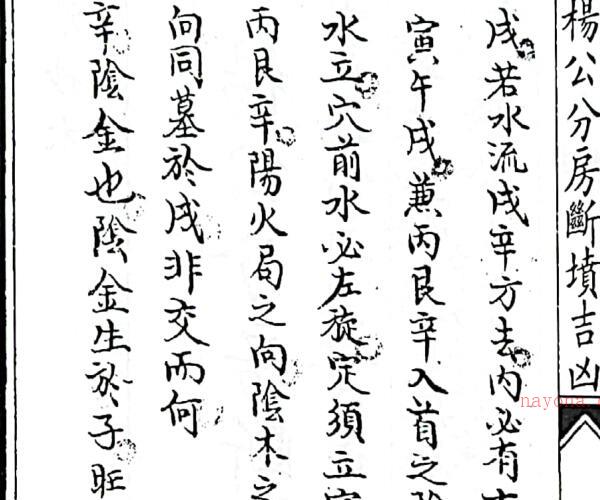 楊公分房斷墳吉凶
戌若水流戌辛方去內必有
寅午戌兼丙艮辛入首之
水立穴前水必左旋定須立
丙艮辛陽火局之向陰木之
向同墓於戌非交而何
辛陰金也陰金生於子旺
nayona.cn